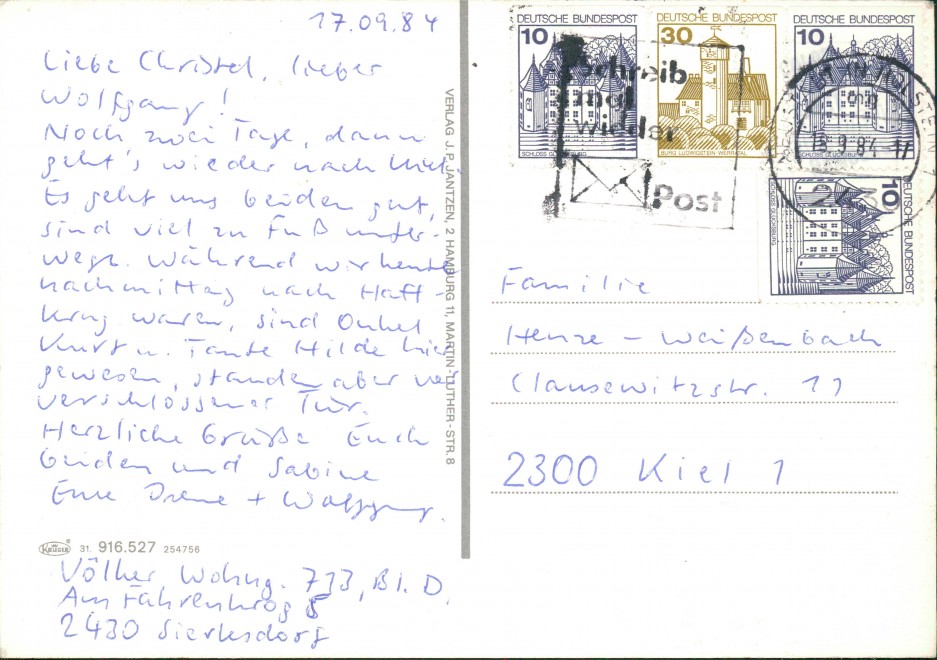 17.09.84
Liebe Christel, lieber
Wolfgang!
Noch zwei Tage, dann
geht's wieder nach Kiel.
Es geht uns beiden gut,
sind viel zu Fuß unter-
wegs. Während wir heute
nachmittag nach Haff-
krug waren, sind Onkel
Kurt u. Tante Hilde hier
gewesen, standen aber vor
verschlossener Tür.
Herzliche Grüße Euch
beiden und Sabine
Eure Irene + Wolfgang.
KRÜGER 31. 916.527 254756
Völker Wohng. 733, Bl. D,
Am Fahrenkrog 5
2430 Sierksdorf
VERLAG J. P. JANTZEN, 2 HAMBURG 11, MARTIN-LUTHER-STR. 8
DEUTSCHE BUNDESPOST
10
SCHLOSS GLÜCKSBURG
DEUTSCHE BUNDESPOST
30
BURG LUDWIGSTEIN WERRATAL
DEUTSCHE BUNDESPOST
10
SCHLOSS GLÜCKSBURG
DEUTSCHE BUNDESPOST
10
SCHLOSS GLÜCKSBURG
Schreib
mal
wieder
Post
HOLSTEIN 1
9.84
Familie
Henze - Weißenbach
Clausewitzstr. 11
2300 Kiel 1